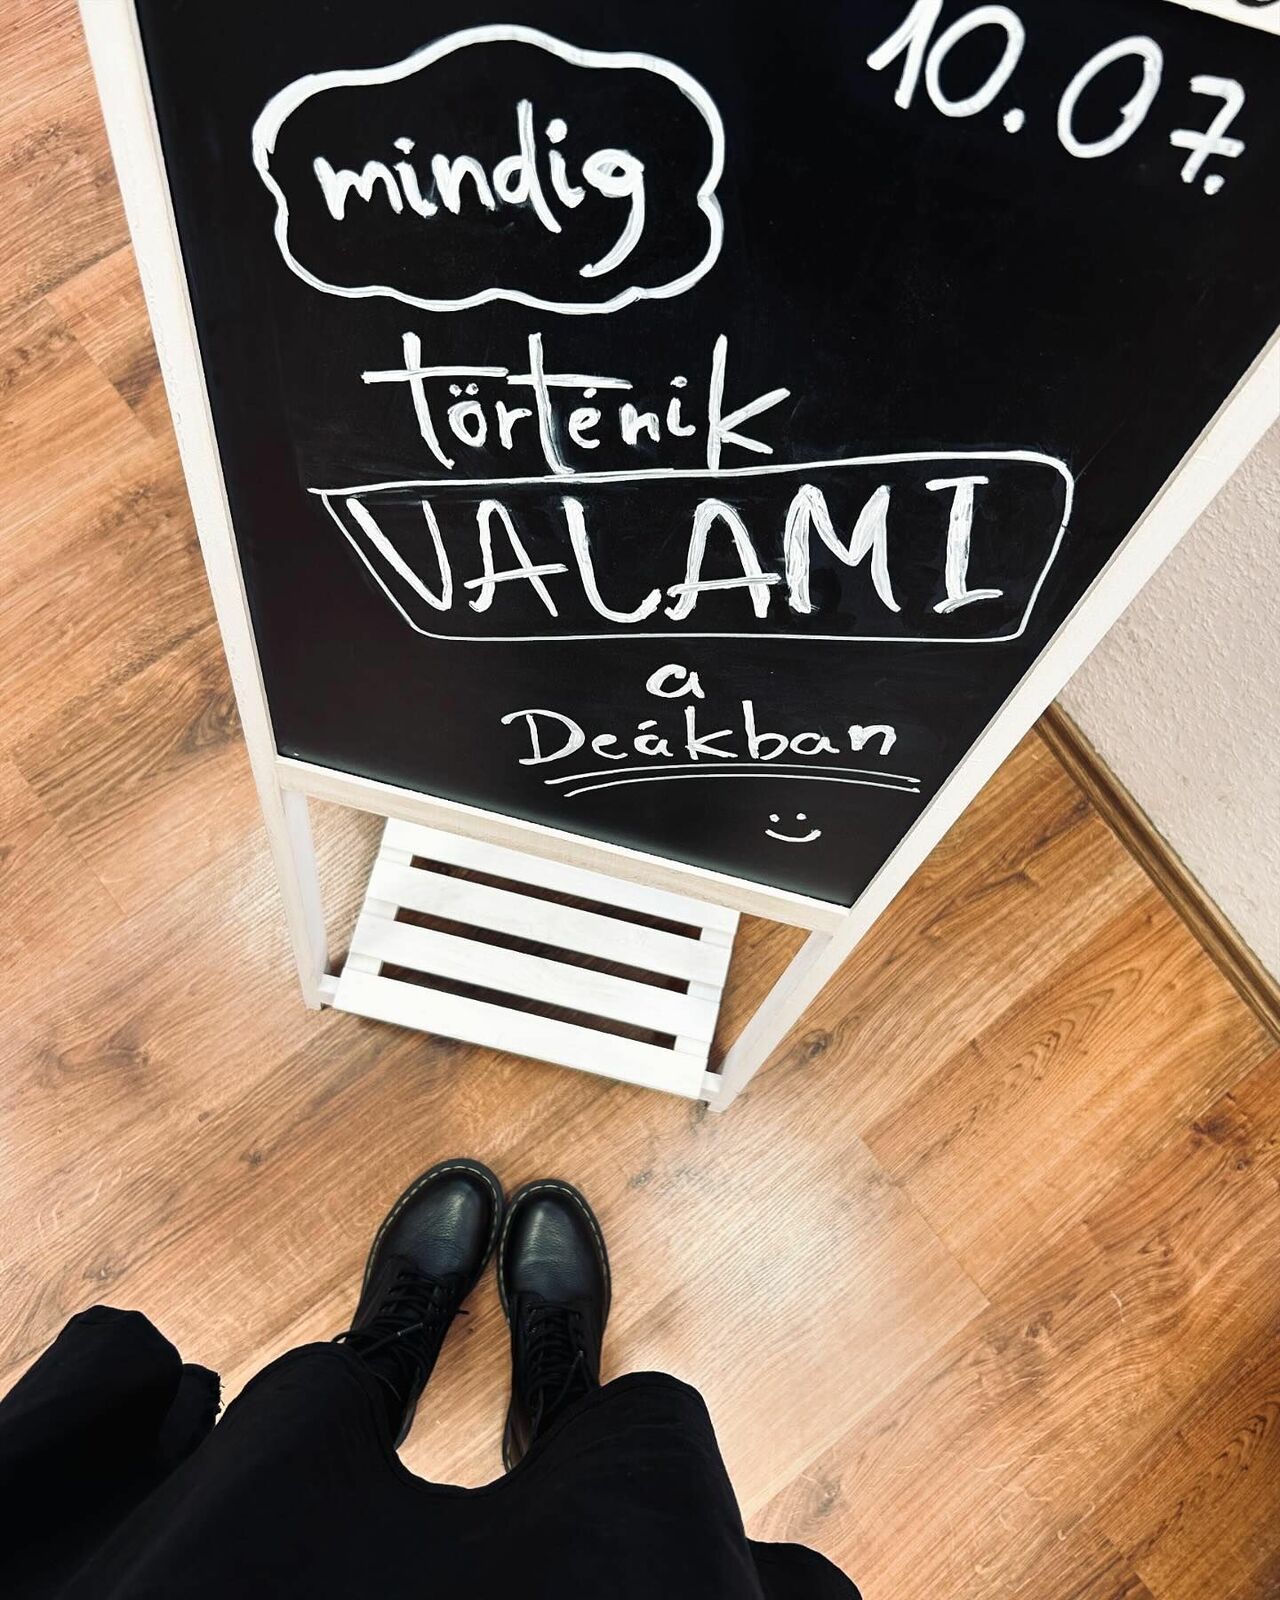 10.07.
mindig
történik
VALAMI
a
Deákban